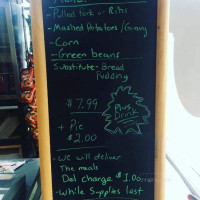 -Pulled Pork or Ribs
-Mashed Potatoes/Gravy
-Corn
-Green beans
Substitute-Bread
Pudding
$7.99
Plus
Drink
+ Pie
$2.00
-We will deliver
The meals
Del charge $1.00
-While Supplies last